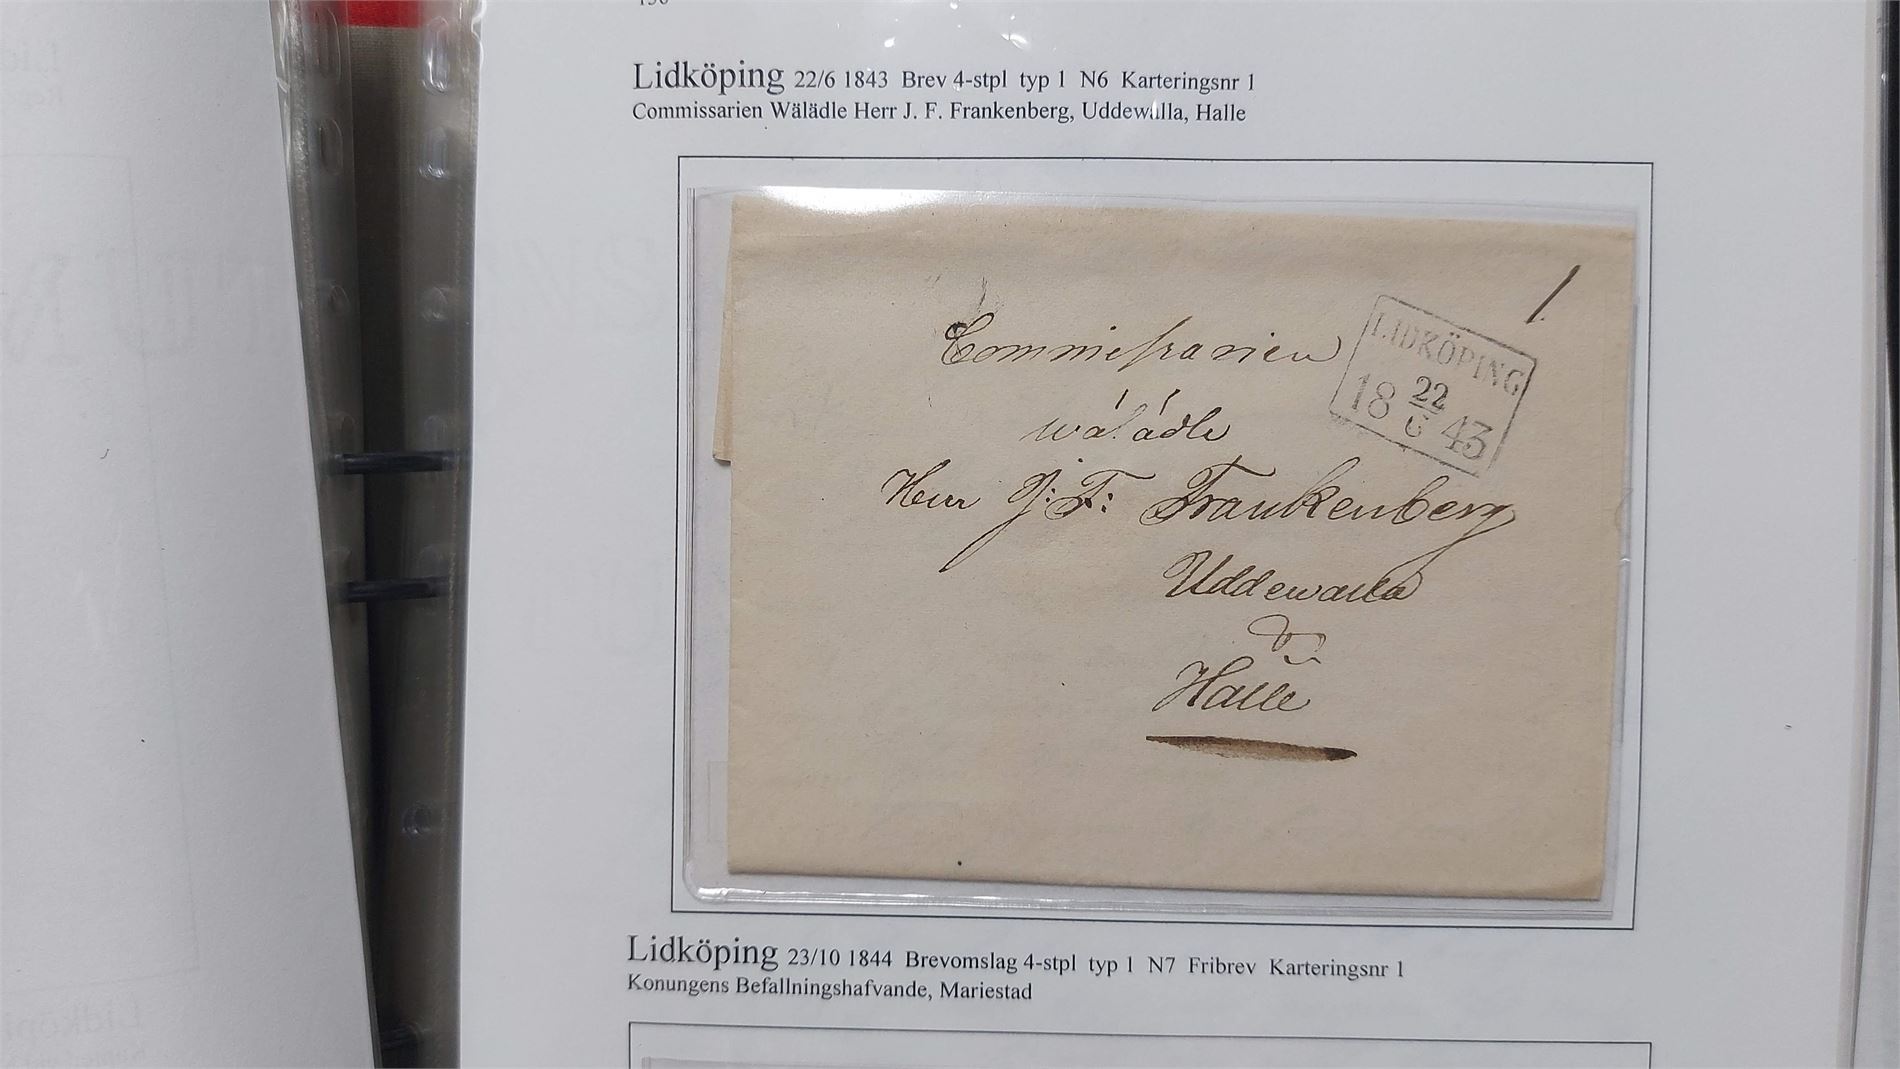 Lidköping 22/6 1843 Brev 4-stpl typ 1 N6 Karteringsnr 1
Commissarien Wälädle Herr J. F. Frankenberg, Uddewalla, Halle
1.
LIDKÖPING
18 22/6 43
Commissarien
wälädle
Herr J: F: Frankenberg
Uddewalla
Halle
Lidköping 23/10 1844 Brevomslag 4-stpl typ 1 N7 Fribrev Karteringsnr 1
Konungens Befallningshafvande, Mariestad